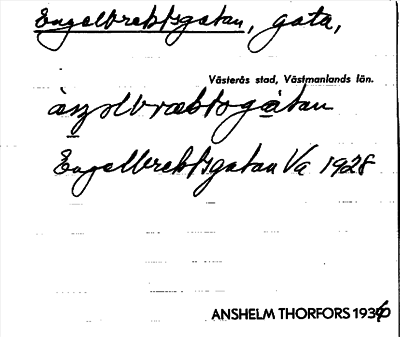 Engelbrektsgatan, gata,
Västerås stad, Västmanlands län.
Engelbrektsgatan Va 1928
ANSHELM THORFORS 1930